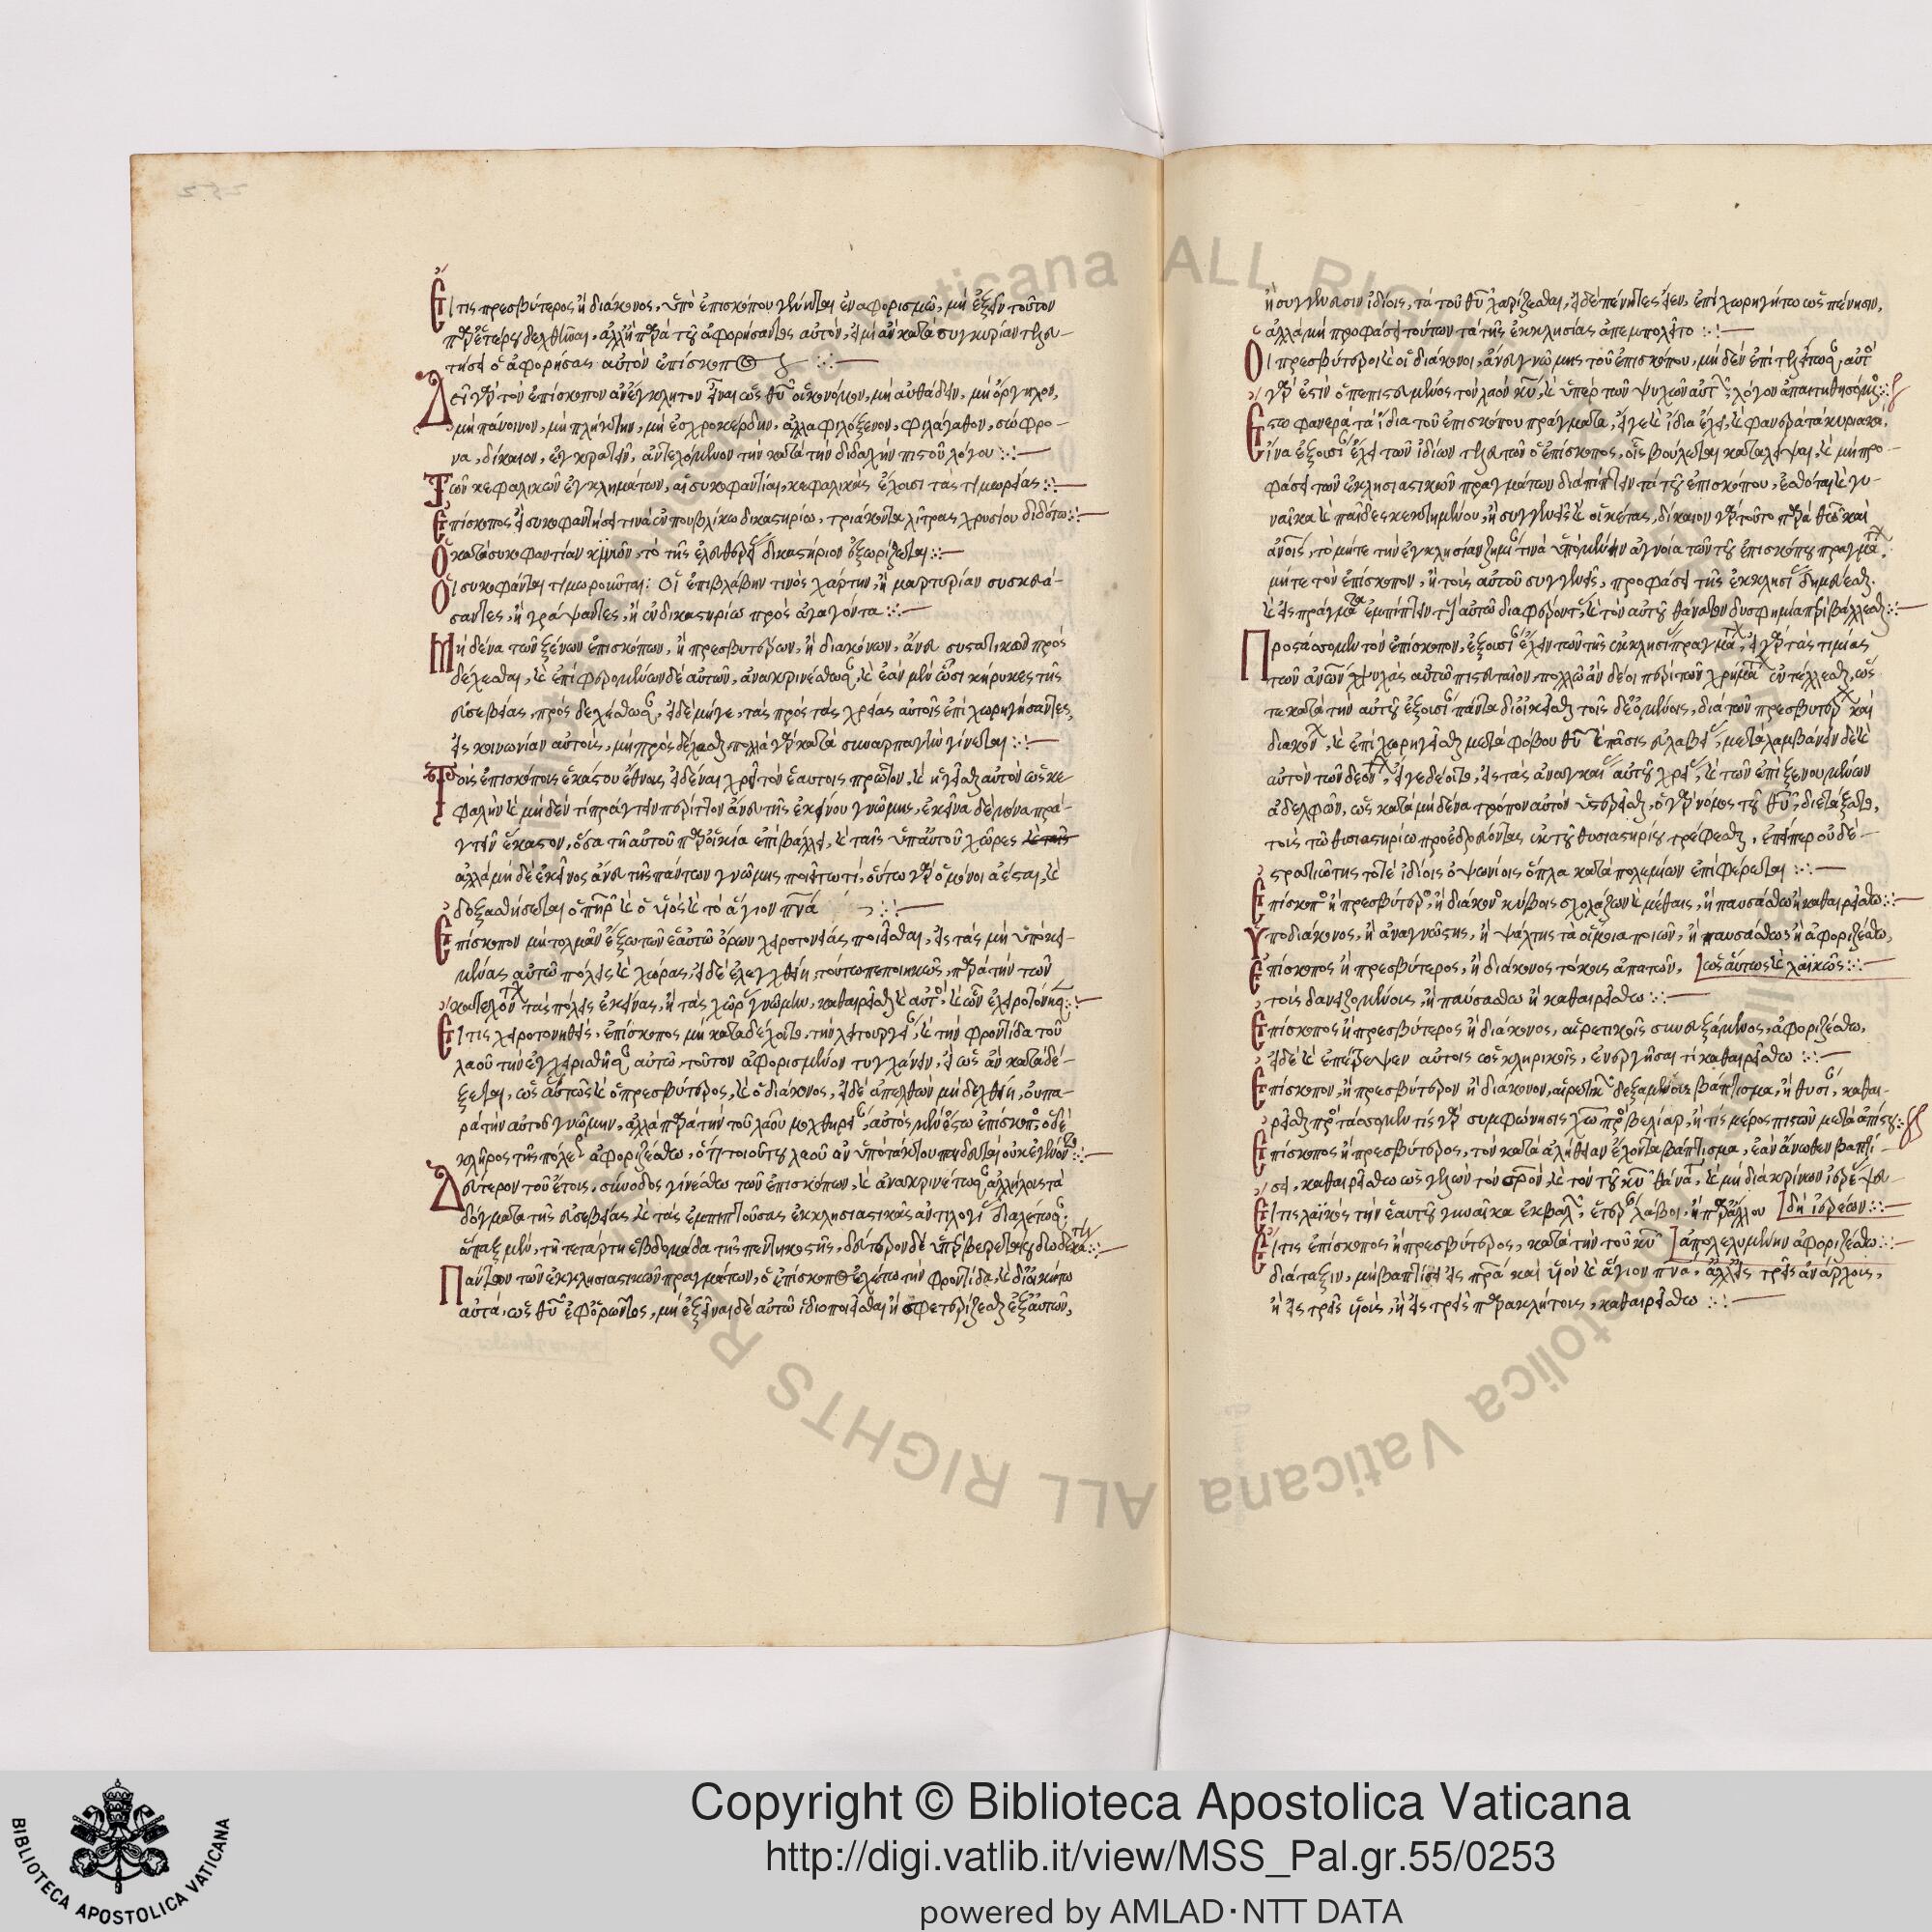 Εἴ τις πρεσβύτερος ἢ διάκονος, ὑπὸ ἐπισκόπου γένηται ἐν ἀφορισμῶ, μὴ ἐξεῖν τοῦτον
παρ' ἑτέρου δεχθῆναι, ἀλλ' ἢ παρὰ τοῦ ἀφορήσαντος αὐτὸν, εἰ μὴ ἂν κατὰ συγκυρίαν τελευ-
τήσει ὁ ἀφορήσας αὐτὸν ἐπίσκοπος
Δεῖ γὰρ τὸν ἐπίσκοπον ἀνέγκλητον εἶναι ὡς θυ οἰκονόμον, μὴ αὐθάδειν, μὴ ὀργηλον,
μὴ πάνοινον, μὴ πλήκτην, μὴ ἐσχροκέρδην, ἀλλα φιλόξενον, φιλάγαθον, σώφρο-
να, δίκαιον, ἐγκρατεῖν, ἀντεχόμενον τὴν κατὰ τὴν διδαχὴν πιστοῦ λόγου
Τῶν κεφαλικῶν ἐγκλημάτων, αἱ συκοφαντίαι, κεφαλικὰς ἔχουσι τας τιμωρίας
Ἐπίσκοπος εἰ συκοφαντήσει τινὰ ἐν πουβλίκω δικαστηρίω, τριάκοντα λίτρας χρυσίου διδότω
Ὁ κατὰ συκοφαντίαν κινιῶν, τὸ τῆς ἐλευθερίας δικαστήριον ἐξωρίζεται
Οἱ συκοφάνται τιμωροῦνται: Οἱ ἐπιβλάβην τινὸς χάρτην, ἢ μαρτυρίαν συσκευά-
σαντες, ἢ γράψαντες, ἢ ἐν δικαστηρίω προς ἀγαγόντα
Μηδένα τῶν ξένων ἐπισκόπων, ἢ πρεσβυτέρων, ἢ διακόνων, ἄνευ συστατικῶν προς
δέχεσθαι, καὶ ἐπιφερομένων δὲ αὐτῶν, ἀνακρινέσθωσαν, καὶ ἐὰν μὲν ὦσι κήρυκες τῆς
εὐσεβείας, προς δεχέσθωσαν, εἰ δὲ μήγε, τὰς πρὸς τὰς χρείας αὐτοῖς ἐπιχωρηγήσαντες,
εἰς κοινωνίαν αὐτοὺς, μὴ προς δέχεσθαι πολλὰ γὰρ κατὰ συναρπαγὴν γίνεται
Τοὺς ἐπισκόπους ἑκάστου ἔθνους, εἰδέναι χρὴ τὸν ἑαυτοις πρῶτον, καὶ ἡγεῖσθαι αὐτὸν ὡς κε-
φαλὴν καὶ μηδέν τι πράγτειν περίττον ἄνευ τῆς ἐκείνου γνώμης, ἐκεῖνα δὲ μόνα πρά-
γτειν ἕκαστον, ὅσα τῆ αὐτοῦ παροικία ἐπιβάλλει, καὶ ταῖς ὑπ' αὐτοῦ χώρες
ἀλλὰ μὴ δὲ ἐκεῖνος ἄνευ τῆς πάντων γνώμης ποιείτω τί, οὕτω γὰρ ὁμόνοι ἀέσται, καὶ
δοξασθήσεται ὁ πηρ καὶ ὁ υἱὸς καὶ τὸ ἅγιον πνα
Ἐπίσκοπον μὴ τολμᾶν ἔξω τῶν ἑαυτῶ ὅρων χειροτονείας ποιεῖσθαι, εἰς τὰς μὴ ὑποκει-
μένας αὐτῶ πόλεις καὶ χώρας, εἰ δὲ ἐλεγχθείη, τούτω πεποιηκῶς, παρὰ τὴν τῶν
κατεχόντων τὰς πόλεις ἐκείνας, ἢ τὰς χώρας γνώμην, καθαιρεῖσθαι καὶ αὐτὸς, καὶ ὧν ἐχειροτόνησεν
Εἴ τις χειροτονηθεὶς, ἐπίσκοπος μὴ καταδέχοιτο, τὴν λειτουργείαν, καὶ τὴν φροντίδα τοῦ
λαοῦ τὴν ἐγχειρισθῆσαν αὐτῶ, τοῦτον ἀφορισμένον τυγχάνειν, εἰ ὡς ἂν καταδέ-
ξεται, ὡς αὕτως καὶ ὁ πρεσβύτερος, καὶ ὁ διάκονος, εἰ δὲ ἀπελθὼν μὴ δεχθείη, οὐ πα-
ρὰ τὴν αὐτοῦ γνώμην, ἀλλὰ παρὰ τὴν τοῦ λαοῦ μοχθηρείαν, αὐτὸς μενέστω ἐπίσκοπος, ὁ δὲ
κλῆρος τῆς πόλεως ἀφοριζέσθω, ὅτι τοιούτου λαοῦ ἀνυποτάκτου παιδευταὶ οὐκ ἐγένοντο
Δεύτερον τοῦ ἔτους, σύνοδος γινέσθω τῶν ἐπισκόπων, καὶ ἀνακρινέτωσαν ἀλλήλους τὰ
δόγματα τῆς εὐσεβείας καὶ τὰς ἐμπιπτούσας ἐκκλησιαστικὰς ἀντιλογίας διαλεπωσαν
ἅπαξ μὲν, τῆ τετάρτη ἑβδομάδα τῆς πεντηκοστῆς, δεύτερον δὲ ὑπερβερεταίου δωδεκάτη
Πάντων τῶν ἐκκλησιαστικῶν πραγμάτων, ὁ ἐπίσκοπος ἐχέτω τὴν φροντίδα, καὶ διοικείτω
αὐτὰ, ὡς θυ ἐφορῶντος, μὴ ἐξεῖναι δὲ αὐτῶ ἰδιοποιεῖσθαι ἢ σφετερίζεσθαι ἐξ αὐτῶν,
ἢ συγγενέσιν ἰδίοις, τὰ τοῦ θυ χαρίζεσθαι, εἰ δὲ πένητες εἶεν, ἐπιχωρηγήτω ὡς πένησιν,
ἀλλὰ μὴ προφάσει τούτων τὰ τῆς ἐκκλησίας ἀπεμπολεῖτο
Οἱ πρεσβύτεροι καὶ οἱ διάκονοι, ἄνευ γνώμης τοῦ ἐπισκόπου, μηδὲν ἐπιτελείτωσαν, αὐτὸς
γάρ ἐστιν ὁ πεπιστευμένος τὸν λαὸν κυ, καὶ ὑπὲρ τῶν ψυχῶν αὐτῶν λόγον ἀπαιτηθησόμενος
Ἔστω φανερὰ τὰ ἴδια τοῦ ἐπισκόπου πράγματα, εἴγε καὶ ἴδια ἔχει, καὶ φανερὰ τὰ κυριακὰ,
ἵνα ἐξουσίαν ἔχει τῶν ἰδίων τελευτῶν ὁ ἐπίσκοπος, οἷς βούλεται καταλεῖψαι, καὶ μὴ προ-
φάσει τῶν ἐκκλησιαστικῶν πραγμάτων διαπίπτειν τὰ τοῦ ἐπισκόπου, ἐσθόται καὶ γυ-
ναῖκα καὶ παῖδες κεκτημένου, ἢ συγγενεῖς καὶ οἰκέτας, δίκαιον γὰρ τοῦτο παρὰ θεῶ καὶ
ἀνοις, τὸ μήτε τὴν ἐγκλησίαν ζημίαν τινὰ ὑπομένειν ἀγνοία τῶν τοῦ ἐπισκόπου πραγμάτων,
μήτε τὸν ἐπίσκοπον, ἢ τοὺς αὐτοῦ συγγενεῖς, προφάσει τῆς ἐκκλησίας δημεύεσθαι,
καὶ εἰς πράγματα ἐμπίπτειν τοὺς αὐτῶ διαφέροντας, καὶ τὸν αὐτοῦ θάνατον δυσφημία περιβάλλεσθαι
Προστάσσομεν τὸν ἐπίσκοπον, ἐξουσίαν ἔχειν τῶν τῆς ἐκκλησίας πραγμάτων, εἰ γὰρ τὰς τιμίας
τῶν ἀνων ψυχὰς αὐτῶ πιστευταῖον, πολλῶ ἂν δέοι περὶ τῶν χρημάτων ἐντέλλεσθαι, ὡς
τε κατὰ τὴν αὐτοῦ ἐξουσίαν πάντα διοικεῖσθαι τοῖς δεομένοις, διὰ τῶν πρεσβυτέρων καὶ
διακόνων, καὶ ἐπιχωρηγεῖσθαι μετὰ φόβου θυ καὶ πάσις εὐλαβείας, μεταλαμβάνειν δὲ καὶ
αὐτὸν τῶν δεόντων, εἴγε δέοιτο, εἰς τὰς ἀναγκαίας αὐτοῦ χρείας, καὶ τῶν ἐπιξενουμένων
ἀδελφῶν, ὡς κατὰ μηδένα τρόπον αὐτὸν ὑστερεῖσθαι, ὁ γὰρ νόμος τοῦ θυ, διετάξατο,
τοὺς τῶ θυσιαστηρίω προεδρεύοντας ἐκ τοῦ θυσιαστηρίου τρέφεσθαι, ἐπείπερ οὐδὲ
στρατιώτης ποτὲ ἰδίοις ὀψωνίοις ὅπλα κατὰ πολεμίων ἐπιφέρεται
Ἐπίσκοπος ἢ πρεσβύτερος, ἢ διάκονος κύβοις σχολάζων καὶ μέθαις, ἢ παυσάσθω ἢ καθαιρείσθω
Ὑποδιάκονος, ἢ ἀναγνώστης, ἢ ψάλτης τὰ ὅμοια ποιῶν, ἢ παυσάσθω ἢ ἀφοριζέσθω,
ὡς αὕτως καὶ λαϊκῶς
Ἐπίσκοπος ἢ πρεσβύτερος, ἢ διάκονος τόκους ἀπατῶν,
τοὺς δανειζομένους, ἢ παύσασθω ἢ καθαιρείσθω
Ἐπίσκοπος ἢ πρεσβύτερος ἢ διάκονος, αἱρετικοῖς συνευξάμενος, ἀφοριζέσθω,
εἰ δὲ καὶ ἐπέτρεψεν αὐτοις ὡς κληρικοῖς, ἐνεργῆσαι τὶ καθαιρείσθω
Ἐπίσκοπον, ἢ πρεσβύτερον ἢ διάκονον, αἱρετικῶν δεξαμένους βάπτισμα, ἢ θυσίαν, καθαι-
ρεῖσθαι προστάσσομεν τίς γὰρ συμφώνησις χω πρὸς βελίαρ, ἢ τίς μέρος πιστῶν μετὰ ἀπίστου
Ἐπίσκοπος ἢ πρεσβύτερος, τὸν κατὰ ἀλήθειαν ἔχοντα βάπτισμα, ἐὰν ἄνωθεν βαπτί-
σει, καθαιρείσθω ὡς γελῶν τὸν σρον, καὶ τὸν τοῦ κυ θάνατον, καὶ μὴ διακρίνων ἱερέας ψευ-
δὴ ἱερέων
Εἴ τις λαϊκὸς τὴν ἑαυτοῦ γυναῖκα ἐκβαλὼν, ἑτέραν λάβοι, ἢ παρ' ἄλλου
ἀπολελυμένην ἀφοριζέσθω
Εἴ τις ἐπίσκοπος ἢ πρεσβύτερος, κατὰ τὴν τοῦ κυ
διάταξιν, μὴ βαπτίσει εἰς πρα καὶ υἱὸν καὶ ἅγιον πνα, ἀλλ' εἰς τρεῖς ἀνάρχους,
ἢ εἰς τρεῖς υἱοὺς, ἢ εἰς τρεῖς παρακλήτους, καθαιρείσθω
Copyright © Biblioteca Apostolica Vaticana
http://digi.vatlib.it/view/MSS_Pal.gr.55/0253
powered by AMLAD·NTT DATA
BIBLIOTECA APOSTOLICA VATICANA